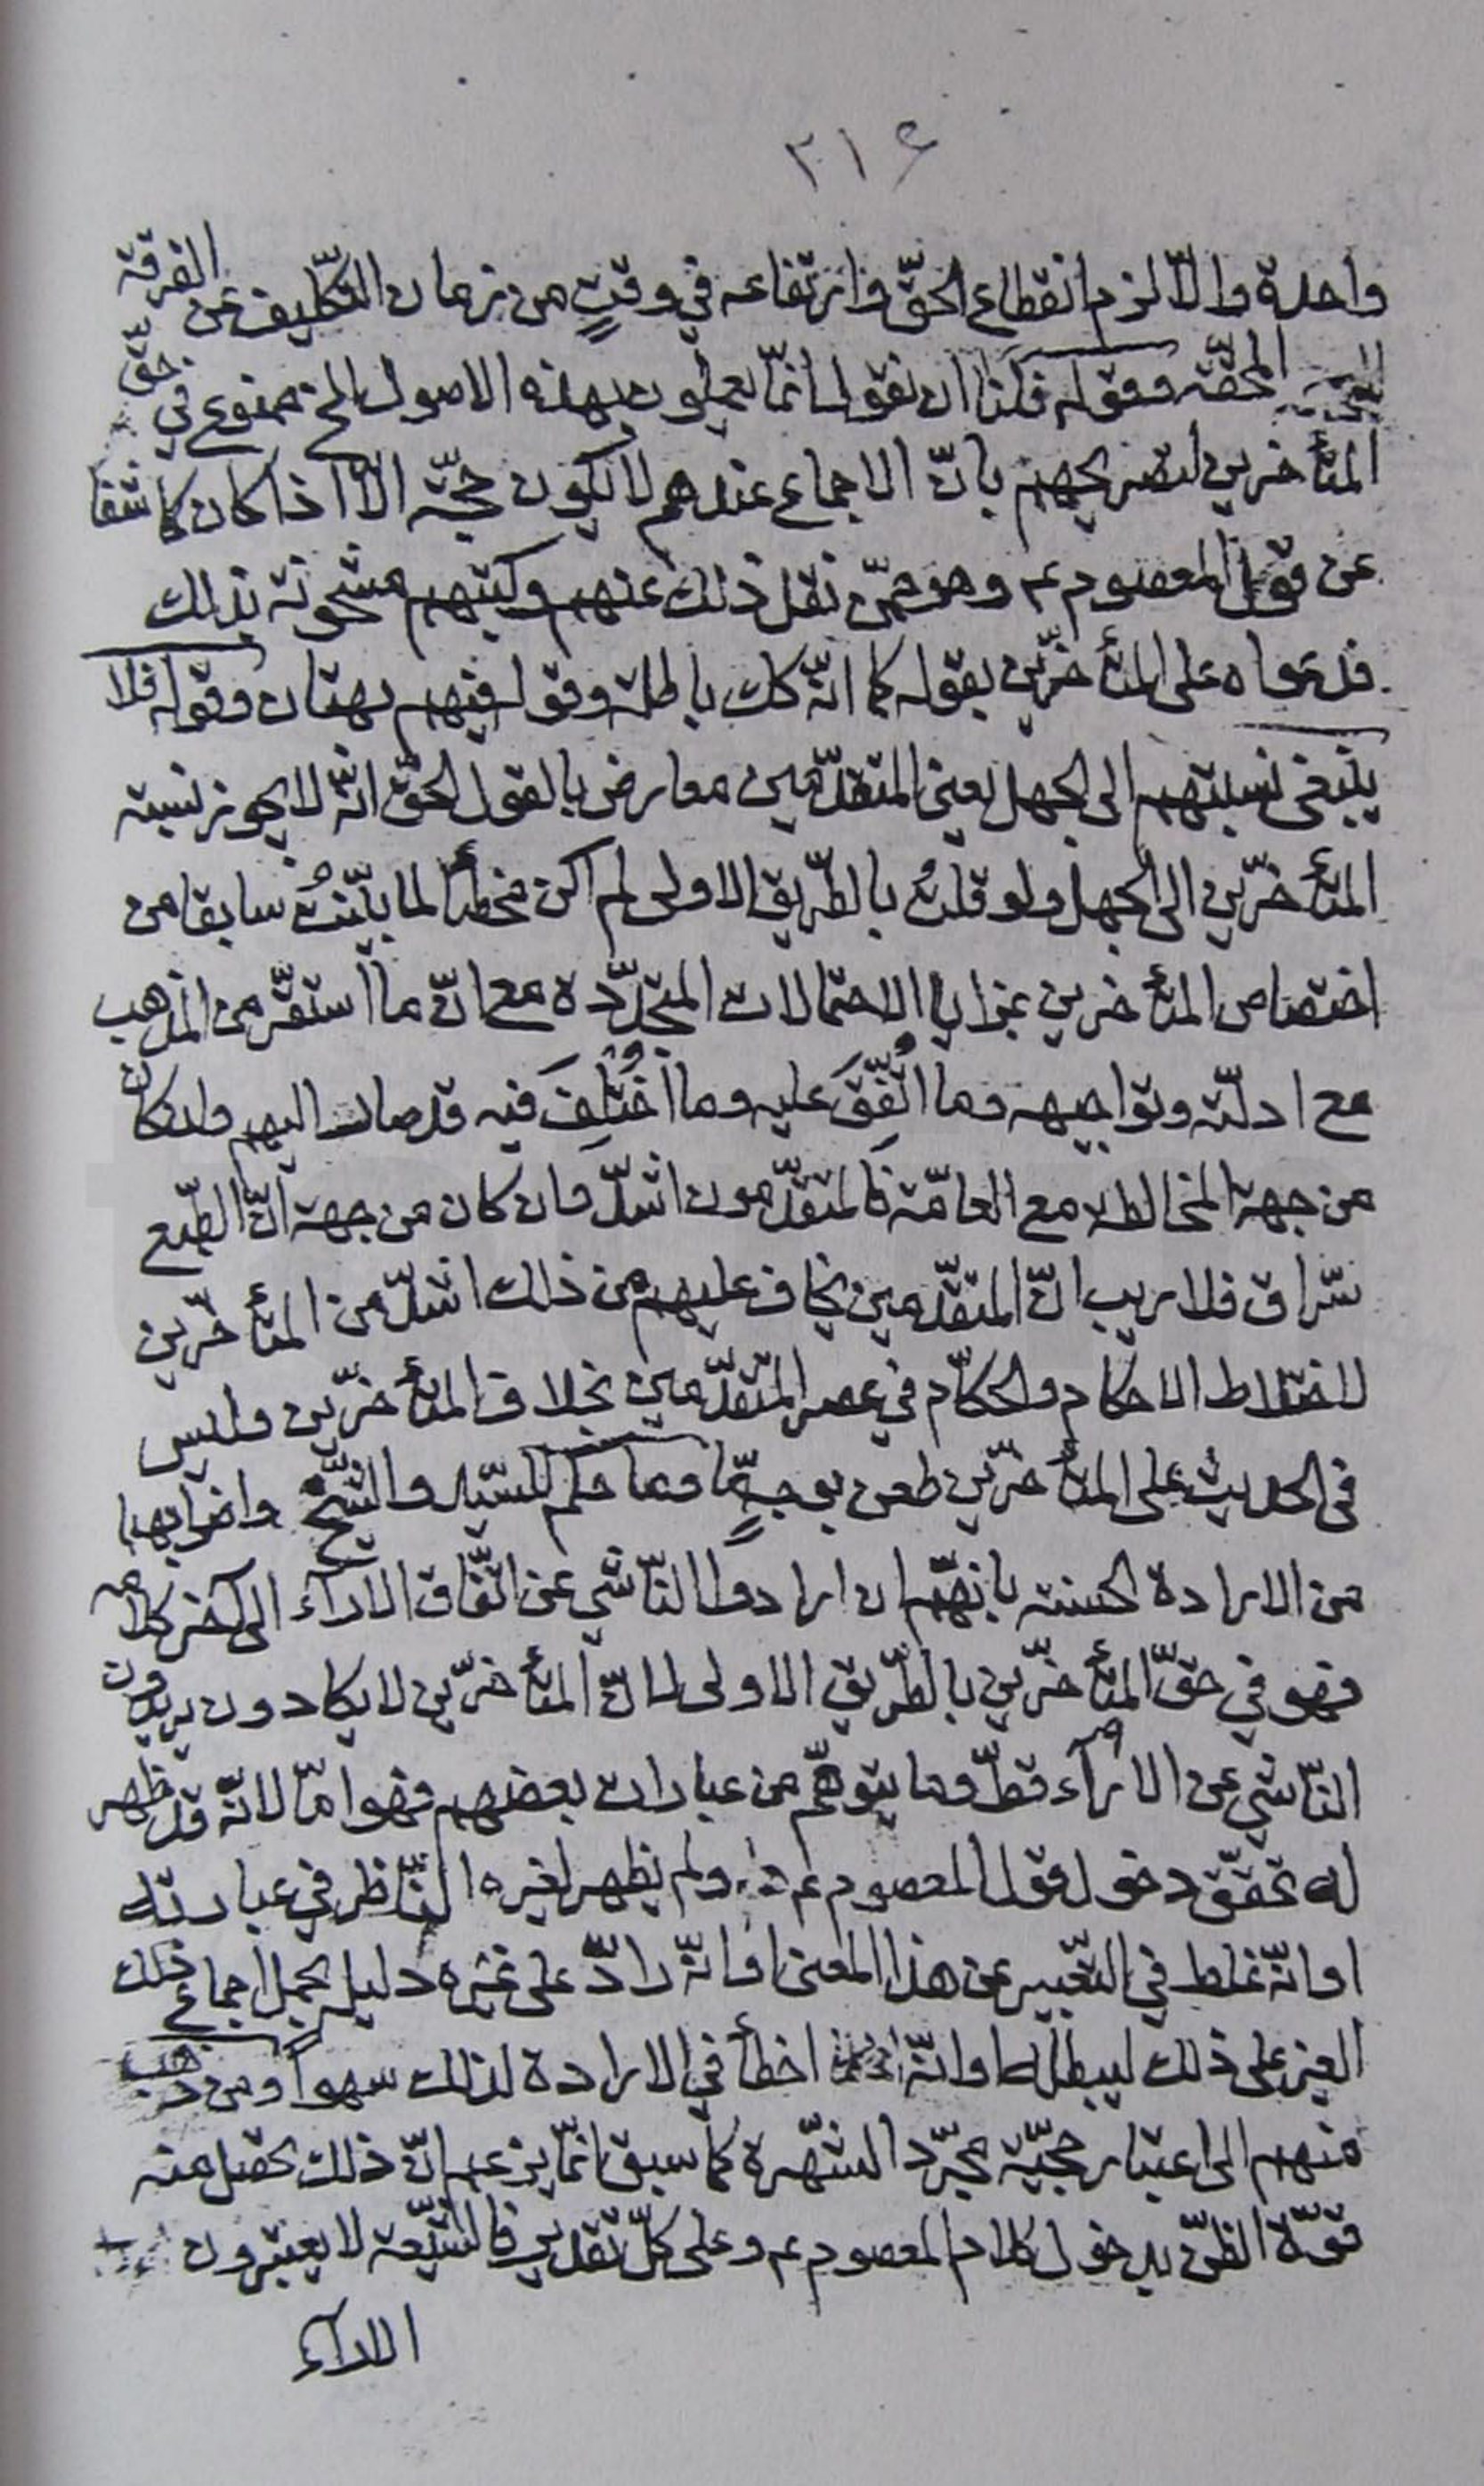 ٢١۶
واحدة والّا لزم انقطاع الحقّ وارتفاعه في وقتٍ من زمان التكليف عن الفرقة
المحقّة وقوله فلنا ان نقول انّما يعملون بهذه الاصول الخ ممنوع في حقّ
المتأخرين لتصريحهم بانّ الاجماع عندهم لا يكون حجّة الّا اذا كان كاشفا
عن قول المعصوم عم وهو ممّن نقل ذلك عنهم وكتبهم مشحونة بذلك
فدعواه على المتأخّرين بقوله كما انّه كك باطلة وقوله فيهم بهتان وقوله فلا
ينبغى نسبتهم الى الجهل يعنى المتقدّمين معارض بالقول الحقّ انّه لا يجوز نسبة
المتأخّرين الى الجهل ولو قلتُ بالطّريق الاولى لم اكن مخطأً لما بيّنتُ سابقا من
اختصاص المتأخرين بمزايا الاحتمالات المتجدّدة مع انّ ما استقرّ من المذهب
مع ادلّته وتواجيهه وما اتُّفِقَ عليه وما اخْتُلِفَ فيه قد صار اليهم وان كان
من جهة المخالطة مع العامّة فالمتقدّمون اشدّ وان كان من جهة انّ الطّبع
سرّاق فلا ريب انّ المتقدّمين يخاف عليهم من ذلك اشدّ من المتأخّرين
لاختلاط الاحكام والحكّام في عصر المتقدّمين بخلاف المتأخّرين وليس
في الحديث على المتأخّرين طعن بوجهٍ مّا وما حكم للسّيد والشّيخ واضرابهما
من الارادة الحسنة بانّهم ان ارادوا النّاشي عن اتّفاق الآراء الى آخر كلامه
فهو في حقّ المتأخّرين بالطّريق الاولى لانّ المتأخّرين لا يكادون يريدون
النّاشي عن الآراء قطّ وما يتوهّم من عبارات بعضهم فهو امّا لانّه قد ظهر
له تحقّق دخول قول المعصوم عم ولم يظهر لغيره النّاظر في عبارته
او انّه غلط في التّعبير عن هذا المعنى او انّه رادّ على غيره دليله بحمل اجماع ذلك
الغير على ذلك ليبطله او انّه اخطأ في الارادة لذلك سهواً ومن ذهب
منهم الى اعتبار حجّيّة مجرّد الشّهرة كما سبق انّما يزعم انّ ذلك يحصل منه
قوّة الظّنّ بدخول كلام المعصوم عم وعلى كلّ تقدير فالشّيعة لا يعتبرون
الآراء